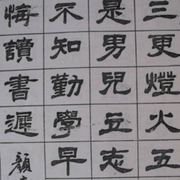 三更燈火五
是男兒立志
不知勤學早
悔讀書遲
顏